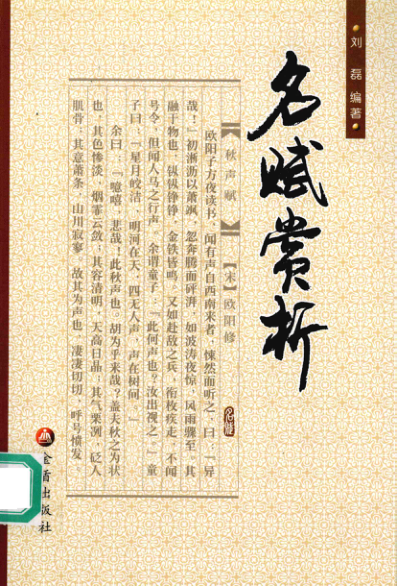 刘磊 编著
名赋赏析
【秋声赋】
【宋】欧阳修
欧阳子方夜读书，闻有声自西南来者，悚然而听之，曰：“异
哉！”初淅沥以萧飒，忽奔腾而砰湃，如波涛夜惊，风雨骤至。其
融于物也，鏦鏦铮铮，金铁皆鸣。又如赴敌之兵，衔枚疾走，不闻
号令，但闻人马之行声。余谓童子：“此何声也？汝出视之。”童
子曰：“星月皎洁，明河在天，四无人声，声在树间。”
余曰：“噫嘻，悲哉！此秋声也。胡为乎来哉？盖夫秋之为状
也：其色惨淡，烟霏云敛；其容清明，天高日晶；其气栗冽，砭人
肌骨；其意萧条，山川寂寥。故其为声也，凄凄切切，呼号愤发。
名赋
金盾出版社